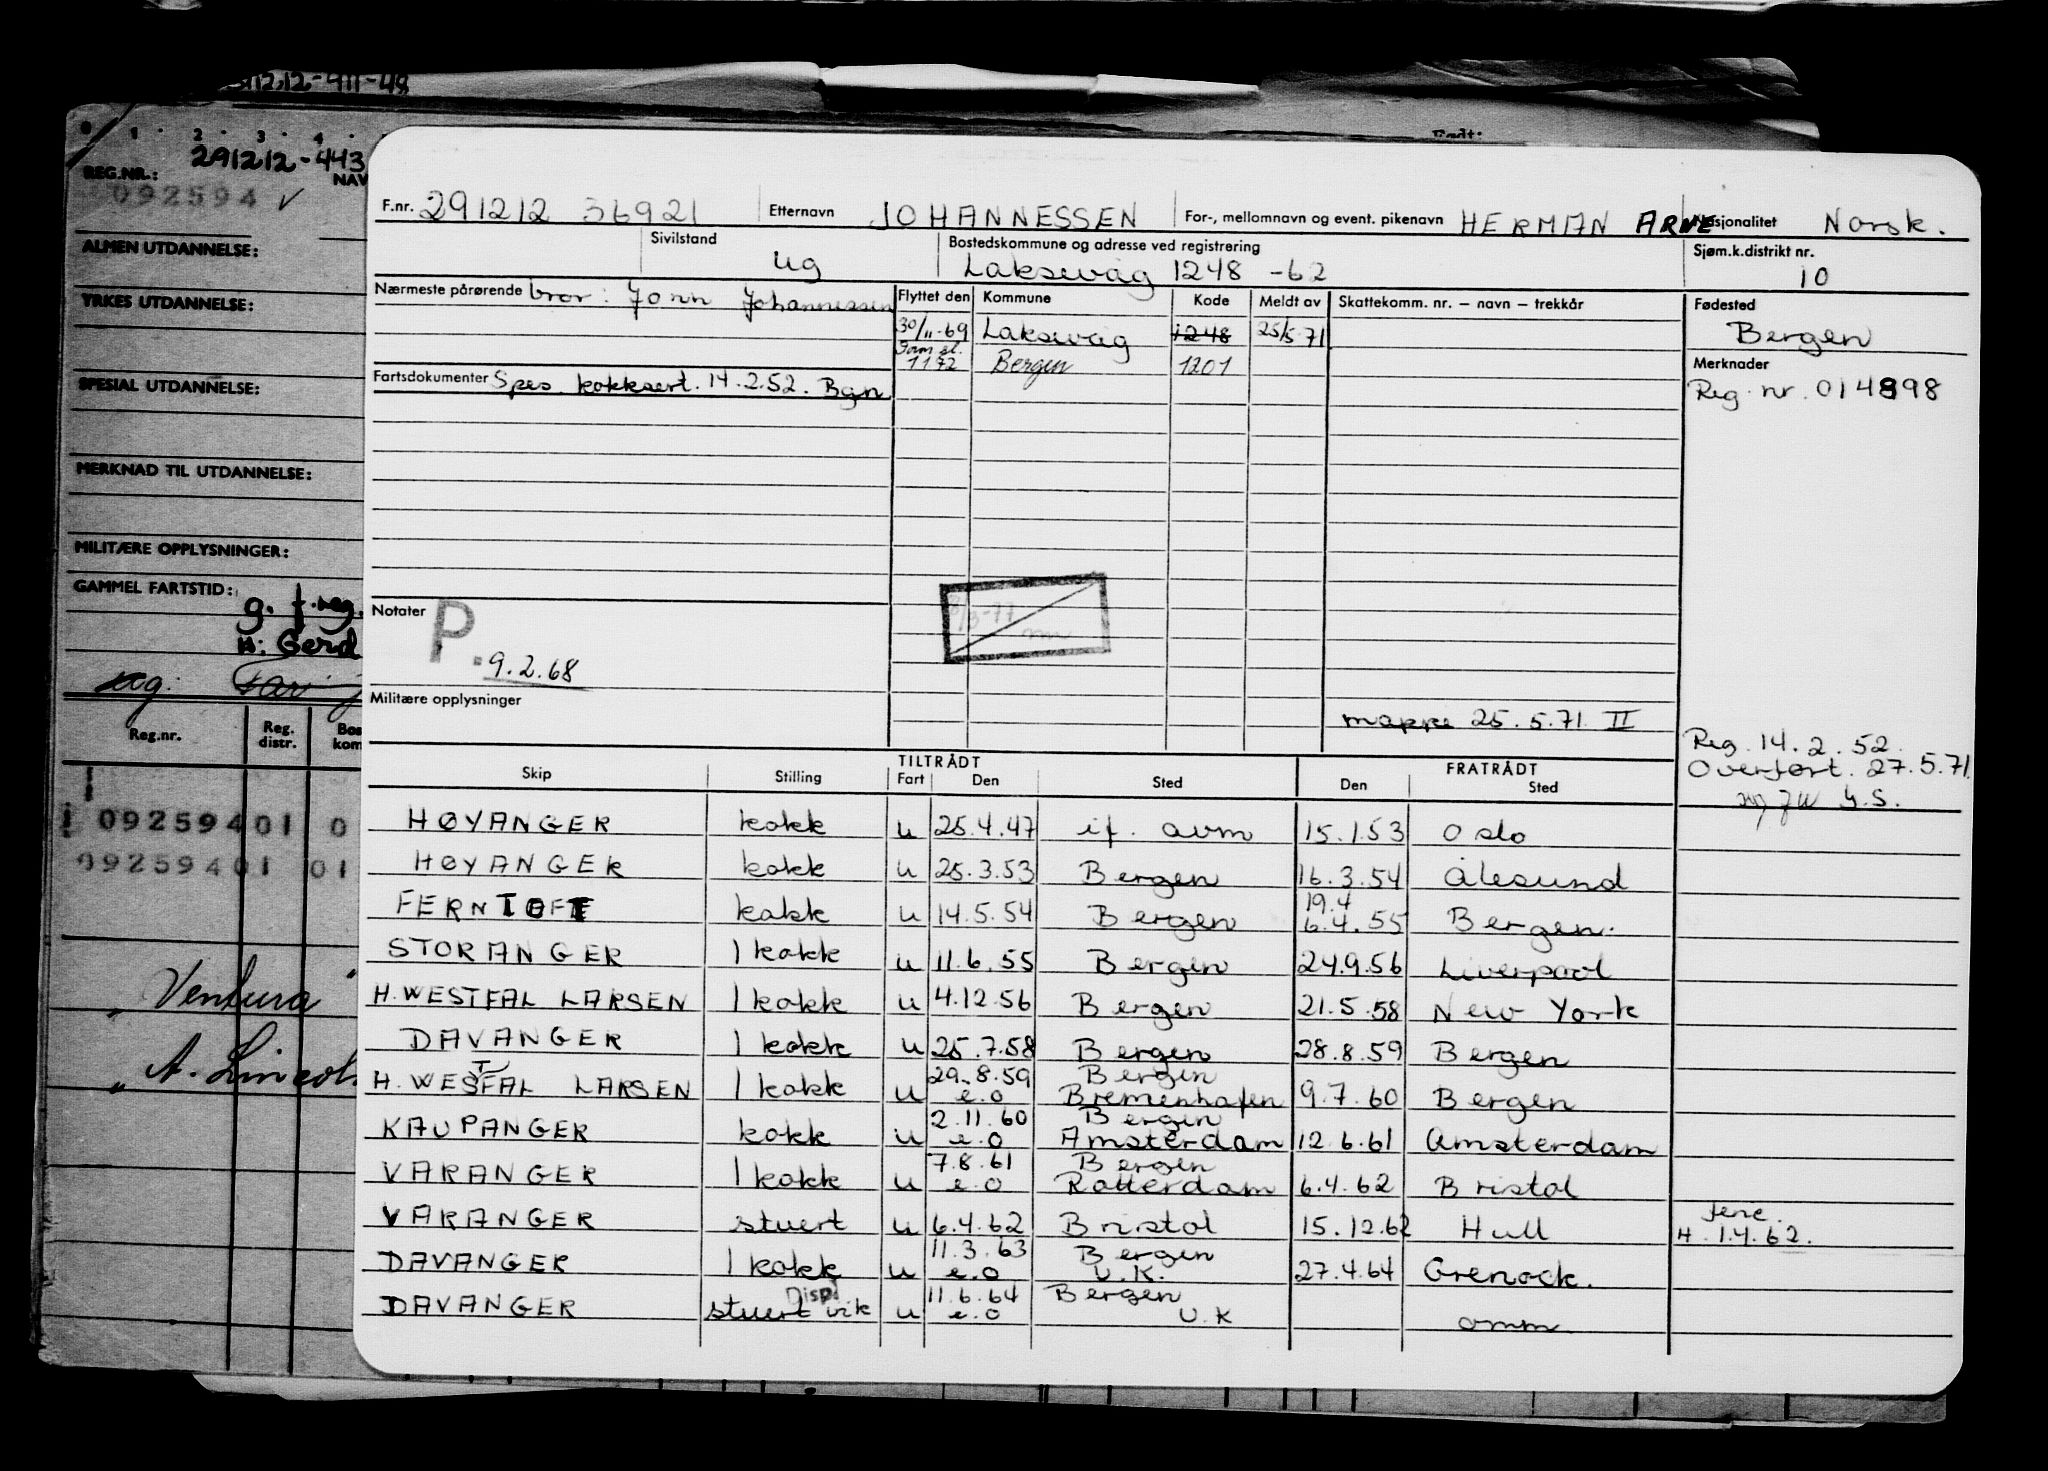 291212-911-48
Født:
0 1 2 3 4
291212-443
REG.NR.: NAV
092594 ✓
ALMEN UTDANNELSE:
YRKES UTDANNELSE:
SPESIAL UTDANNELSE:
MERKNAD TIL UTDANNELSE:
MILITÆRE OPPLYSNINGER:
GAMMEL FARTSTID:
g. f.reg.
H: Gerd
Reg.nr. Reg. distr. Bos kom
09259401 0
09259401 01
"Ventura"
"A. Lincoln
F.nr. 291212 36921 Etternavn JOHANNESSEN For-, mellomnavn og event. pikenavn HERMAN ARNE Nasjonalitet Norsk.
Sivilstand ug Bostedskommune og adresse ved registrering Laksevåg 1248 -62 Sjøm.k.distrikt nr. 10
Nærmeste pårørende bror: John Johannessen Flyttet den Kommune Kode Meldt av Skattekomm. nr. – navn – trekkår Fødested
30/11-69 Laksevåg 1248 25/5-71 Bergen
Sam sl. 1172 Bergen 1201 Merknader
Fartsdokumenter Spes. kokksert. 14.2.52. Bgn Reg. nr. 014898
Notater P. 9.2.68
8/3-77
Militære opplysninger
mappe 25.5.71 II
Reg. 14.2.52.
Overført. 27.5.71.
Skip Stilling TILTRÅDT Fart Den Sted FRATRÅDT Den Sted
HØYANGER kokk u 25.4.47 if. avm 15.1.53 Oslo
HØYANGER kokk u 25.3.53 Bergen 16.3.54 Ålesund
FERNTOFT kokk u 14.5.54 Bergen 19.4 6.4.55 Bergen.
STORANGER 1 kokk u 11.6.55 Bergen 24.9.56 Liverpool
H. WESTFAL LARSEN 1 kokk u 4.12.56 Bergen 21.5.58 New York
DAVANGER 1 kokk u 25.7.58 Bergen 28.8.59 Bergen
H. WESTFAL LARSEN 1 kokk u 29.8.59 e.o Bergen Bremenhafen 9.7.60 Bergen
KAUPANGER kokk u 2.11.60 e.o Bergen Amsterdam 12.6.61 Amsterdam
VARANGER 1 kokk u 7.8.61 e.o Bergen Rotterdam 6.4.62 Bristol
VARANGER stuert u 6.4.62 Bristol 15.12.62 Hull ferie. H. 1.4.62.
DAVANGER 1 kokk u 11.3.63 e.o Bergen U.K. 27.4.64 Grenock.
DAVANGER stuert Disp vik u 11.6.64 e.o Bergen U.K omm